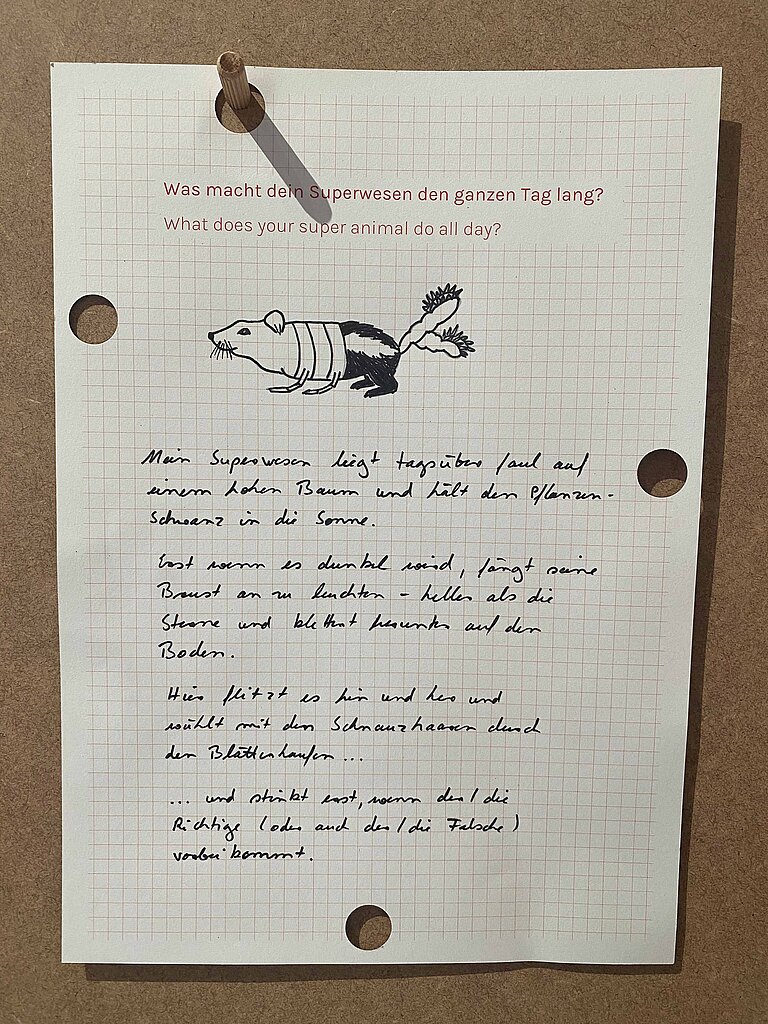 Was macht dein Superwesen den ganzen Tag lang?
What does your super animal do all day?
Mein Superwesen liegt tagsüber faul auf
einem hohen Baum und hält den Pflanzen-
Schwanz in die Sonne.
Erst wenn es dunkel wird, fängt seine
Brust an zu leuchten - heller als die
Sterne und klettert herunter auf den
Boden.
Hier flitzt es hin und her und
wühlt mit den Schnauzhaaren durch
den Blätterhaufen...
... und stinkt erst, wenn der / die
Richtige (oder auch der / die Falsche)
vorbei kommt.